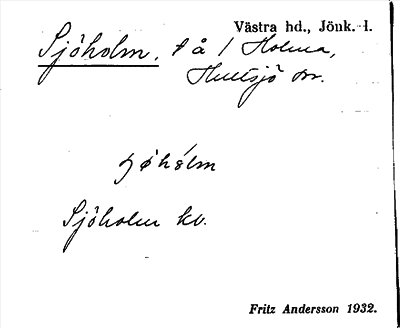 Västra hd., Jönk. l.
Sjöholm, t å 1 Holma,
Hultsjö sn.
Sjöholm kv.
Fritz Andersson 1932.